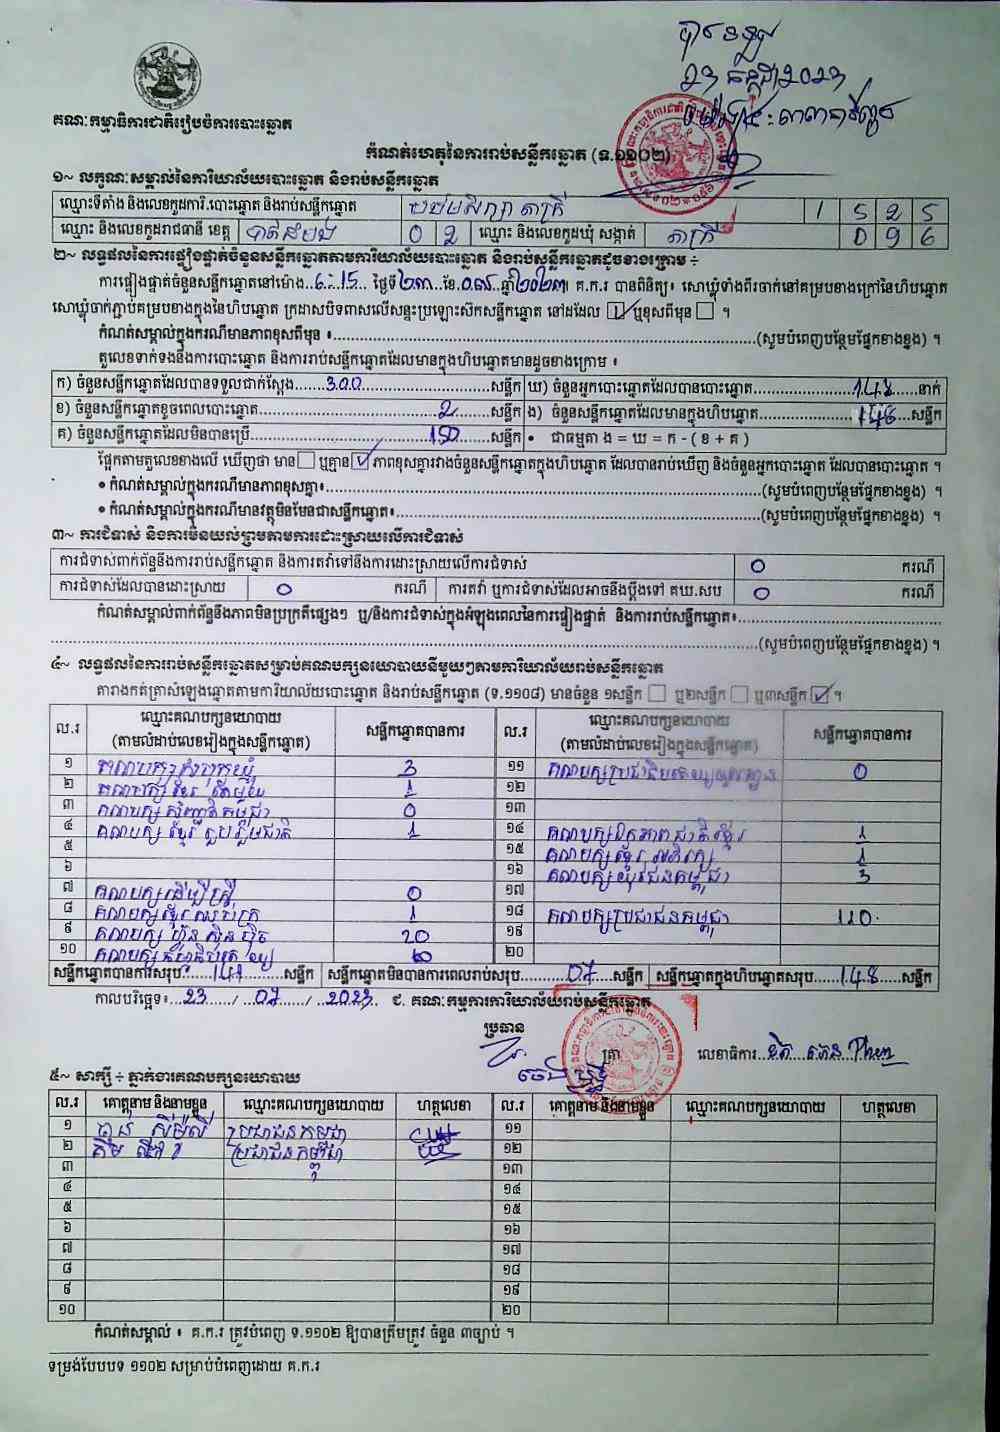 បានទទួល
23 កក្កដា 2023
គណៈកម្មាធិការជាតិរៀបចំការបោះឆ្នោត
កំណត់ហេតុនៃការរាប់សន្លឹកឆ្នោត (ទ.១១០២)
១~ លក្ខណៈសម្គាល់នៃការិយាល័យបោះឆ្នោត និងរាប់សន្លឹកឆ្នោត
ឈ្មោះទីតាំង និងលេខកូដការិ.បោះឆ្នោត និងរាប់សន្លឹកឆ្នោត បឋមសិក្សា តាក្រី 1 5 2 5
ឈ្មោះ និងលេខកូដរាជធានី ខេត្ត បាត់ដំបង 0 2 ឈ្មោះ និងលេខកូដឃុំ សង្កាត់ តាក្រី 0 9 6
២~ លទ្ធផលនៃការផ្ទៀងផ្ទាត់ចំនួនសន្លឹកឆ្នោតតាមការិយាល័យបោះឆ្នោត និងរាប់សន្លឹកឆ្នោតដូចខាងក្រោម ÷
ការផ្ទៀងផ្ទាត់ចំនួនសន្លឹកឆ្នោតនៅម៉ោង..6:15.. ថ្ងៃទី២៣..ខែ.០៧..ឆ្នាំ២០២៣ គ.ក.រ បានពិនិត្យ៖ សោឃ្លុំទាំងពីរចាក់នៅគម្របខាងក្រៅនៃហិបឆ្នោត
សោឃ្លុំចាក់ភ្ជាប់គម្របខាងក្នុងនៃហិបឆ្នោត ក្រដាសបិទពាសលើសន្ទះប្រឡោះស៊កសន្លឹកឆ្នោត នៅដដែល ☑ ឬខុសពីមុន ☐ ។
កំណត់សម្គាល់ក្នុងករណីមានភាពខុសពីមុន ៖..........(សូមបំពេញបន្ថែមផ្នែកខាងខ្នង) ។
តួលេខទាក់ទងនឹងការបោះឆ្នោត និងការរាប់សន្លឹកឆ្នោតដែលមានក្នុងហិបឆ្នោតមានដូចខាងក្រោម ៖
ក) ចំនួនសន្លឹកឆ្នោតដែលបានទទួលជាក់ស្តែង......300......សន្លឹក ឃ) ចំនួនអ្នកបោះឆ្នោតដែលបានបោះឆ្នោត......148......នាក់
ខ) ចំនួនសន្លឹកឆ្នោតខូចពេលបោះឆ្នោត......2......សន្លឹក ង) ចំនួនសន្លឹកឆ្នោតដែលមានក្នុងហិបឆ្នោត......148......សន្លឹក
គ) ចំនួនសន្លឹកឆ្នោតដែលមិនបានប្រើ......150......សន្លឹក • ជាធម្មតា ង = ឃ = ក - ( ខ + គ )
ផ្អែកតាមតួលេខខាងលើ ឃើញថា មាន ☐ ឬគ្មាន ☑ ភាពខុសគ្នារវាងចំនួនសន្លឹកឆ្នោតក្នុងហិបឆ្នោត ដែលបានរាប់ឃើញ និងចំនួនអ្នកបោះឆ្នោត ដែលបានបោះឆ្នោត ។
• កំណត់សម្គាល់ក្នុងករណីមានភាពខុសគ្នា៖..........(សូមបំពេញបន្ថែមផ្នែកខាងខ្នង) ។
• កំណត់សម្គាល់ក្នុងករណីមានវត្ថុមិនមែនជាសន្លឹកឆ្នោត៖..........(សូមបំពេញបន្ថែមផ្នែកខាងខ្នង) ។
៣~ ការជំទាស់ និងការមិនយល់ព្រមតាមការដោះស្រាយលើការជំទាស់
ការជំទាស់ពាក់ព័ន្ធនឹងការរាប់សន្លឹកឆ្នោត និងការតវ៉ាទៅនឹងការដោះស្រាយលើការជំទាស់ 0 ករណី
ការជំទាស់ដែលបានដោះស្រាយ 0 ករណី ការតវ៉ា ឬការជំទាស់ដែលអាចនឹងប្តឹងទៅ គឃ.សប 0 ករណី
កំណត់សម្គាល់ពាក់ព័ន្ធនឹងភាពមិនប្រក្រតីផ្សេងៗ ឬ/និងការជំទាស់ក្នុងអំឡុងពេលនៃការផ្ទៀងផ្ទាត់ និងការរាប់សន្លឹកឆ្នោត៖..........
..........(សូមបំពេញបន្ថែមផ្នែកខាងខ្នង) ។
៤~ លទ្ធផលនៃការរាប់សន្លឹកឆ្នោតសម្រាប់គណបក្សនយោបាយនីមួយៗតាមការិយាល័យរាប់សន្លឹកឆ្នោត
តារាងកត់ត្រាសំឡេងឆ្នោតតាមការិយាល័យបោះឆ្នោត និងរាប់សន្លឹកឆ្នោត (ទ.១១០៨) មានចំនួន ១សន្លឹក ☐ ឬ២សន្លឹក ☐ ឬ៣សន្លឹក ☑ ។
ល.រ ឈ្មោះគណបក្សនយោបាយ (តាមលំដាប់លេខរៀងក្នុងសន្លឹកឆ្នោត) សន្លឹកឆ្នោតបានការ ល.រ ឈ្មោះគណបក្សនយោបាយ (តាមលំដាប់លេខរៀងក្នុងសន្លឹកឆ្នោត) សន្លឹកឆ្នោតបានការ
១ គណបក្សសំបុកឃ្មុំ 3 ១១ គណបក្សប្រជាធិបតេយ្យមូលដ្ឋាន 0
២ គណបក្សខ្មែរតែមួយ 1 ១២
៣ គណបក្សសញ្ជាតិកម្ពុជា 0 ១៣
៤ គណបក្សខ្មែររួបរួមជាតិ 1 ១៤ គណបក្សឯកភាពជាតិខ្មែរ 1
៥ ១៥ គណបក្សខ្មែរអភិរក្ស 1
៦ ១៦ គណបក្សយុវជនកម្ពុជា 3
៧ គណបក្សដើម្បីស្ត្រី 0 ១៧
៨ គណបក្សខ្មែរ 1 ១៨ គណបក្សប្រជាជនកម្ពុជា 110
៩ គណបក្សហ៊្វុនស៊ិនប៉ិច 20 ១៩
១០ គណបក្ស ២០
សន្លឹកឆ្នោតបានការសរុប......141......សន្លឹក សន្លឹកឆ្នោតមិនបានការពេលរាប់សរុប......07......សន្លឹក សន្លឹកឆ្នោតក្នុងហិបឆ្នោតសរុប......148......សន្លឹក
កាលបរិច្ឆេទ៖...23...../...07..../...2023. ជ. គណៈកម្មការការិយាល័យរាប់សន្លឹកឆ្នោត
ប្រធាន
ត្រា
លេខាធិការ
៥~ សាក្សី ÷ ភ្នាក់ងារគណបក្សនយោបាយ
ល.រ គោត្តនាម និងនាមខ្លួន ឈ្មោះគណបក្សនយោបាយ ហត្ថលេខា ល.រ គោត្តនាម និងនាមខ្លួន ឈ្មោះគណបក្សនយោបាយ ហត្ថលេខា
១ ប្រជាជនកម្ពុជា ១១
២ ប្រជាជនកម្ពុជា ១២
៣ ១៣
៤ ១៤
៥ ១៥
៦ ១៦
៧ ១៧
៨ ១៨
៩ ១៩
១០ ២០
កំណត់សម្គាល់ ៖ គ.ក.រ ត្រូវបំពេញ ទ.១១០២ ឱ្យបានត្រឹមត្រូវ ចំនួន ៣ច្បាប់ ។
ទម្រង់បែបបទ ១១០២ សម្រាប់បំពេញដោយ គ.ក.រ